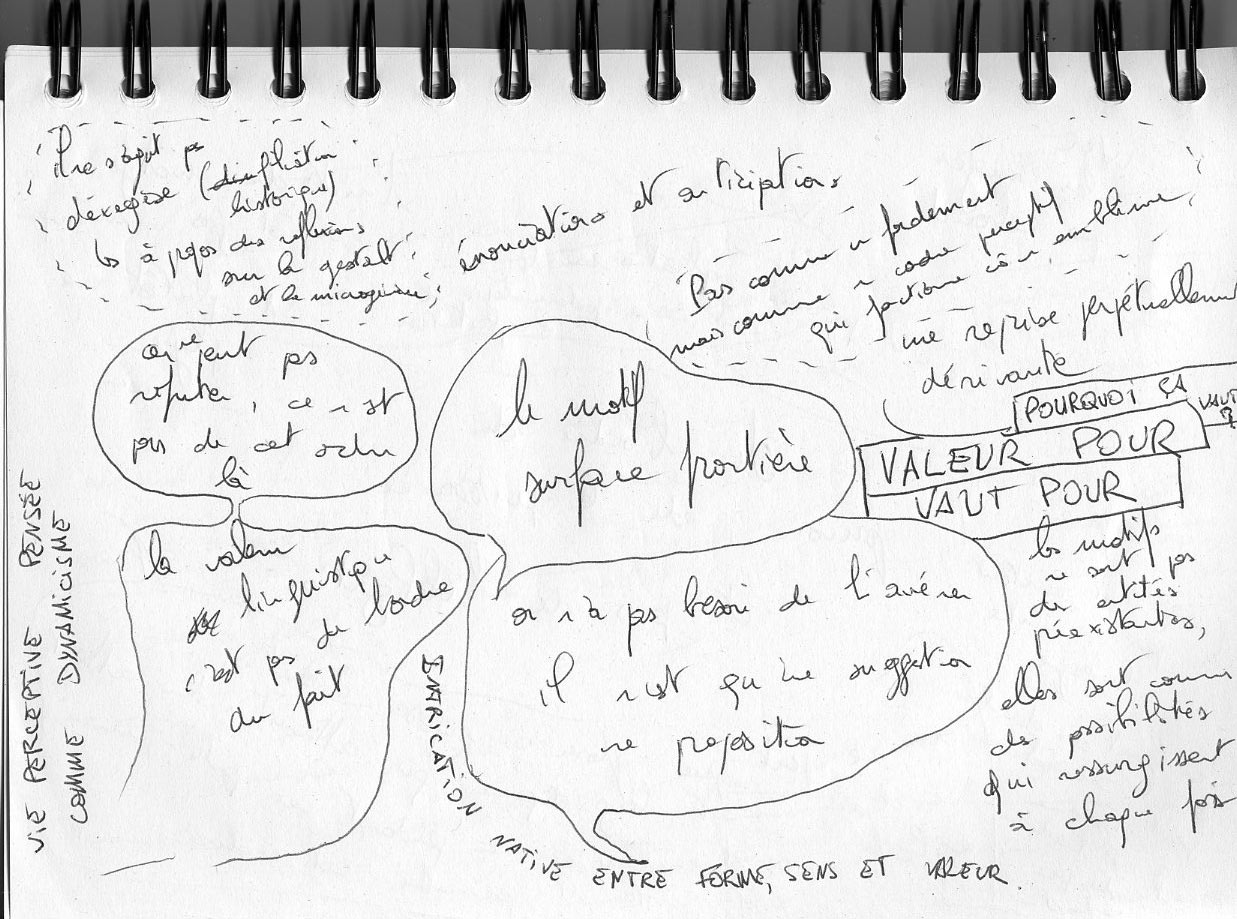 il ne s'agit pas
d'exégèse (
historique)
à propos des réflexions
sur la gestalt
et la microgenèse,
énonciations et anticipations
Pas comme un fondement
mais comme un cadre perceptif
qui fonctionne emblème,
une reprise perpétuellement
dérivante
POURQUOI ÇA
VAUT
?
VALEUR POUR
VAUT POUR
on ne peut pas
réfuter, ce n'est
pas de cet ordre
là
le motif
surface frontière
la valeur
linguistique
c'est pas de l'ordre
du fait
on n'a pas besoin de l'avérer
il n'est qu'une suggestion
une proposition
les motifs
ne sont pas
des entités
préexistantes,
elles sont comme
des possibilités
qui ressurgissent
à chaque fois
VIE PERCEPTIVE PENSÉE
COMME DYNAMICISME
INTRICATION NATIVE ENTRE FORME, SENS ET VALEUR.